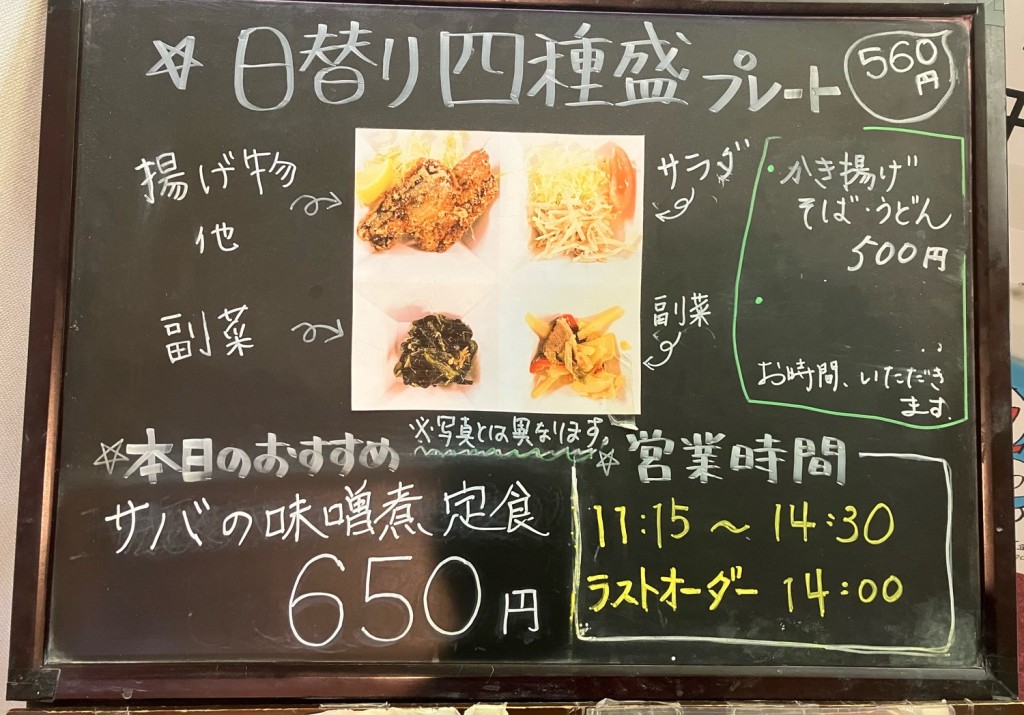 ☆日替り四種盛プレート
560円
揚げ物
他
サラダ
副菜
副菜
・かき揚げ
そば・うどん
500円
・
お時間、いただき
ます。
※写真とは異なります。
☆本日のおすすめ
サバの味噌煮定食
650円
☆営業時間
11:15～14:30
ラストオーダー 14:00